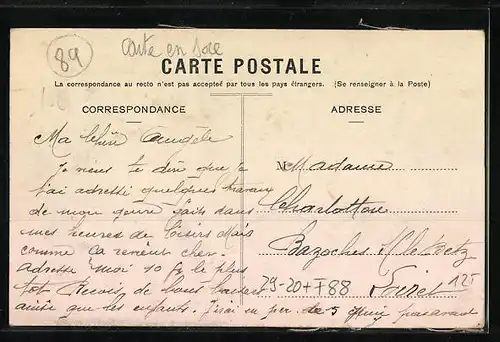 89
Carte en soie
CARTE POSTALE
La correspondance au recto n'est pas acceptée par tous les pays étrangers. (Se renseigner à la Poste)
CORRESPONDANCE
ADRESSE
Ma Chère Angèle
Je viens te dire que je
t'ai adressé quelques travaux
de mon genre faits dans
mes heures de loisirs Mais
comme ca revient cher.
Adresse moi 10 fr le plus
tot Recois de bons baisers
ainsi que les enfants. J'irai en per. le 5 Juin
Madame
Charlotton
Bazoches s/ le Betz
Loiret
29-20+F88
125